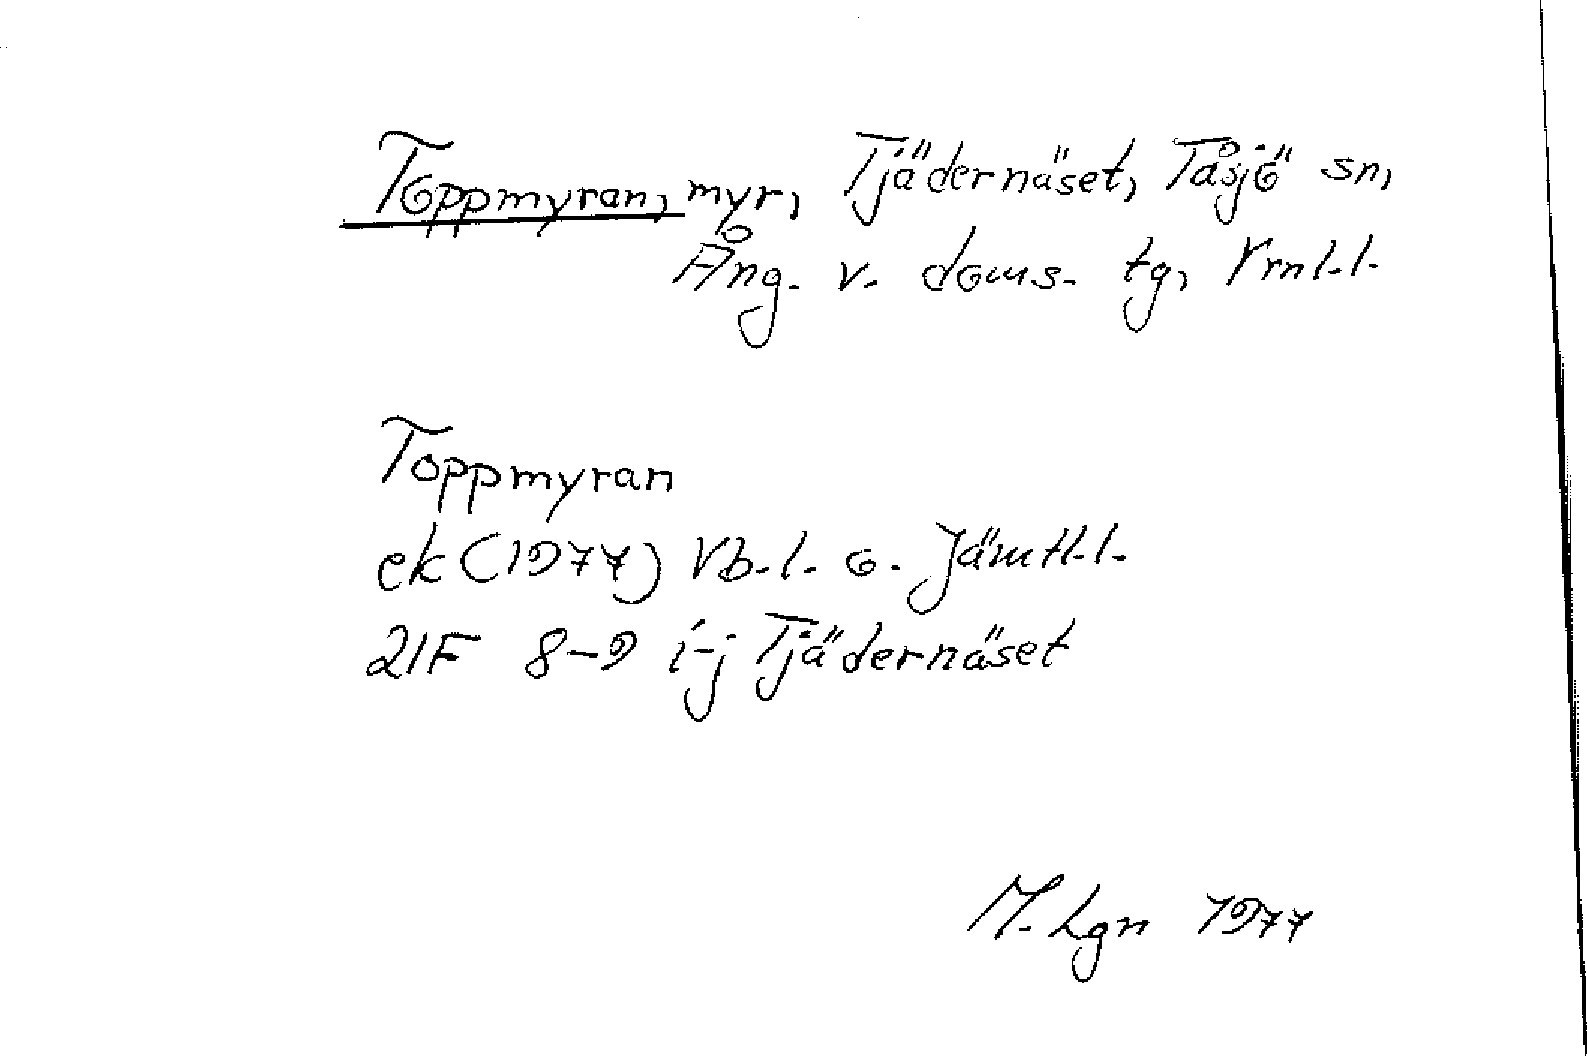 Toppmyran, myr, Tjädernäset, Tåsjö sn,
Ång. v. doms. tg, Vrml.l.
Toppmyran
ek (1977) Vb.l. o. Jämtl.l.
21F 8-9 i-j Tjädernäset
M. Lgn 1977